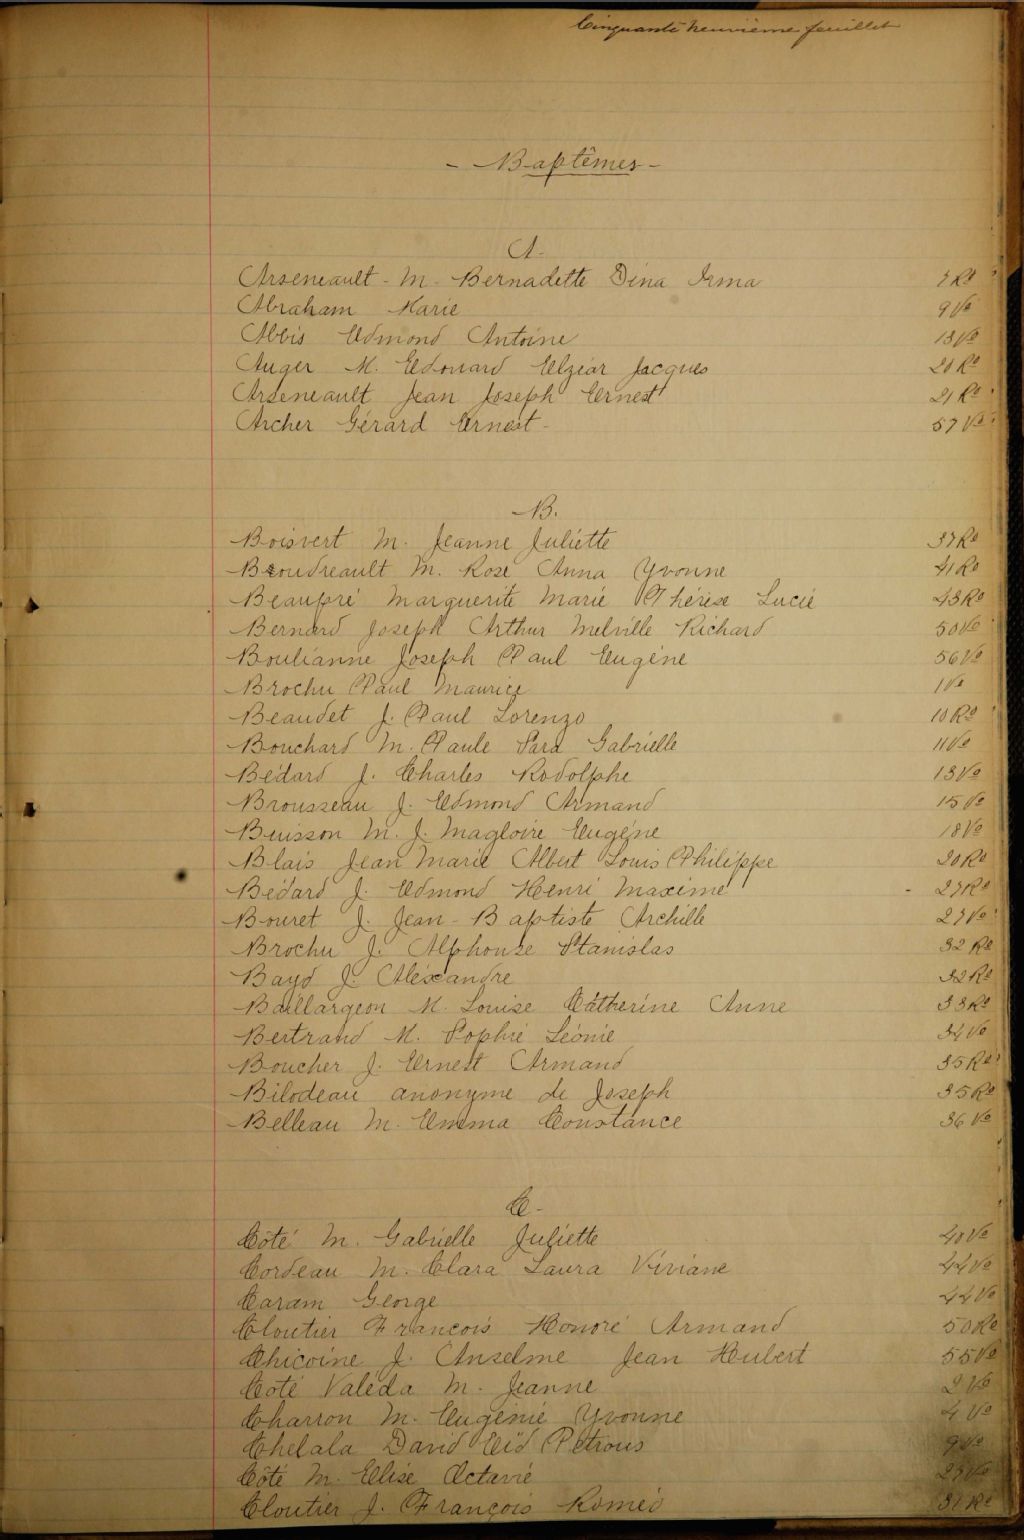 Cinquante neuvième feuillet
- Baptêmes -
A.
Arseneault - M. Bernadette Dina Irma 7 Ro
Abraham Marie 9 Vo
Abbis Edmond Antoine 13 Vo
Auger M. Edouard Elzéar Jacques 20 Ro
Arseneault Jean Joseph Ernest 21 Ro
Archer Gérard Ernest - 57 Vo
B.
Boisvert M. Jeanne Juliette 37 Ro
Boudreault M. Rose Anna Yvonne 41 Ro
Beaupré Marguerite Marie Thérèse Lucie 43 Ro
Bernard Joseph Arthur Melville Richard 50 Vo
Boulianne Joseph Paul Eugène 56 Vo
Brochu Paul Maurice 1 Vo
Beaudet J. Paul Lorenzo 10 Ro
Bouchard M. Paule Sara Gabrielle 11 Vo
Bédard J. Charles Rodolphe 13 Vo
Brousseau J. Edmond Armand 15 Vo
Buisson M. J. Magloire Eugéne 18 Vo
Blais Jean Marie Albert Louis Philippe 20 Ro
Bédard J. Edmond Henri Maxime 27 Ro
Bouret J. Jean-Baptiste Archille 27 Vo
Brochu J. Alphonse Stanislas 32 Ro
Bayd J. Aléxandre 32 Ro
Baillargeon M. Louise Catherine Anne 33 Ro
Bertrand M. Sophie Léonie 34 Vo
Boucher J. Ernest Armand 35 Ro
Bilodeau anonyme de Joseph 35 Ro
Belleau M. Emma Constance 36 Vo
C.
Côté M. Gabrielle Juliette 40 Vo
Cordeau M. Clara Laura Viviane 44 Vo
Caram George 44 Vo
Cloutier François Honoré Armand 50 Ro
Chicoine J. Anselme Jean Hubert 55 Vo
Coté Valéda M. Jeanne 2 Vo
Charron M. Eugénie Yvonne 4 Vo
Chelala David Eïd Petrous 9 Vo
Côté M. Elise Octavie Vo
Cloutier J. François Roméo 31 Ro